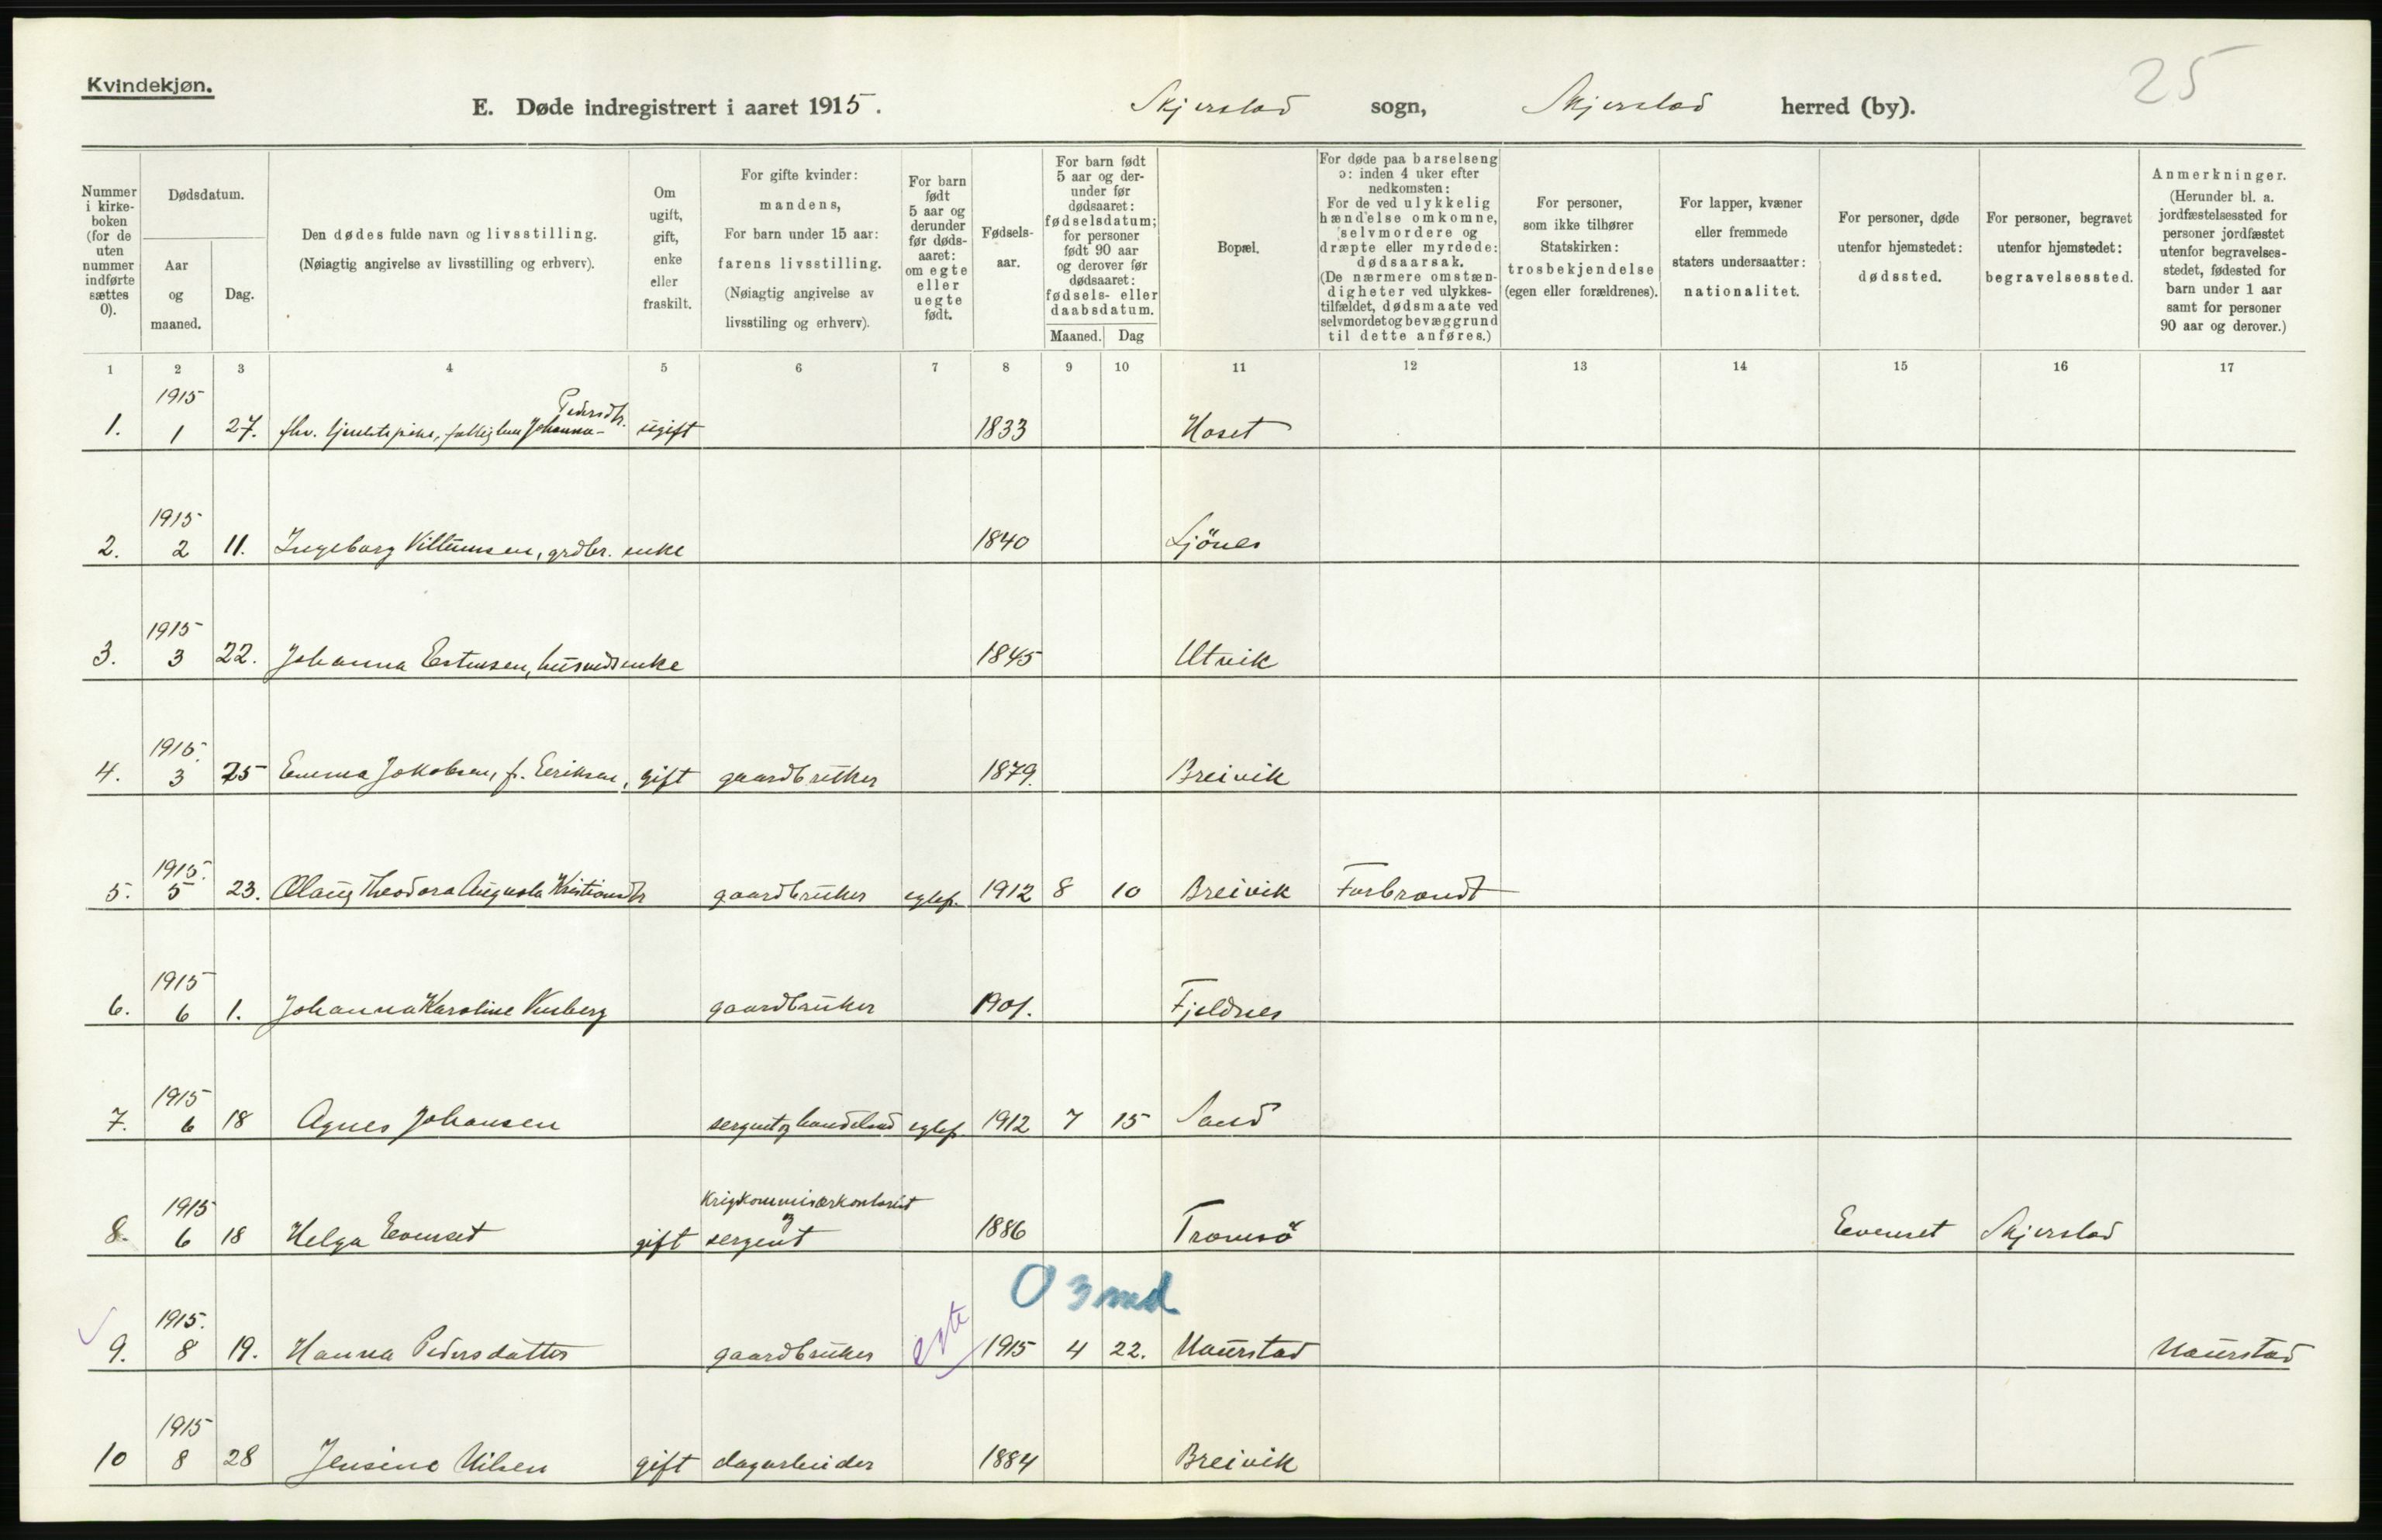 Kvindekjøn.
25
E. Døde indregistrert i aaret 1915. Skjerstad sogn, Skjerstad herred (by).
Nummer i kirke-boken (for de uten nummer indførte sættes 0).
Dødsdatum.
Aar og maaned.
Dag.
Den dødes fulde navn og livsstilling.
(Nøiagtig angivelse av livsstilling og erhverv).
Om ugift, gift, enke eller fraskilt.
For gifte kvinder:
mandens,
For barn under 15 aar:
farens livsstilling.
(Nøiagtig angivelse av
livsstiling og erhverv).
For barn født 5 aar og derunder før døds-aaret: om egte eller uegte født.
Fødsels-aar.
For barn født 5 aar og der-under før dødsaaret: fødselsdatum; for personer født 90 aar og derover før dødsaaret: fødsels- eller daabsdatum.
Maaned. Dag
Bopæl.
For døde paa barselseng
ɔ: inden 4 uker efter
nedkomsten:
For de ved ulykkelig
hændelse omkomne,
selvmordere og
dræpte eller myrdede:
dødsaarsak.
(De nærmere omstæn-
digheter ved ulykkes-
tilfældet, dødsmaate ved
selvmordet og bevæggrund
til dette anføres.)
For personer,
som ikke tilhører
Statskirken:
trosbekjendelse
(egen eller forældrenes).
For lapper, kvæner
eller fremmede
staters undersaatter:
nationalitet.
For personer, døde
utenfor hjemstedet:
dødssted.
For personer, begravet
utenfor hjemstedet:
begravelsessted.
Anmerkninger.
(Herunder bl. a.
jordfæstelsessted for
personer jordfæstet
utenfor begravelses-
stedet, fødested for
barn under 1 aar
samt for personer
90 aar og derover.)
1 2 3 4 5 6 7 8 9 10 11 12 13 14 15 16 17
1915 Pedersdtr.
1. 1 27. fhv. tjenestepike, fattiglem Johanna- ugift 1833 Koset
1915
2. 2 11. Ingeborg Villumsen, grdbr. enke 1840 Ljönes
1915
3. 3 22. Johanna Estensen, husmdsenke 1845 Utvik
1915.
4. 3 25 Emma Jakobsen, f. Eriksen, gift gaardbruker 1879. Breivik
1915.
5. 5 23. Olaug Theodora Augusta Kristiansdtr gaardbruker egtef. 1912 8 10 Breivik Forbrændt
1915
6. 6 1. Johanna Karoline Venberg gaardbruker 1901. Fjeldnes
1915
7. 6 18 Agnes Johansen sergent og handelsmd egtef 1912 7 15 Sand
1915 Krigskommisærkontorist
8. 6 18 Helga Evenset gift og sergent 1886 Tromsö Evenset Skjerstad
0 3 md
1915.
9. 8 19. Hanna Pedersdatter gaardbruker egte 1915 4 22. Naurstad Naurstad
1915
10 8 28 Jensine Nilsen gift dagarbeider 1884 Breivik